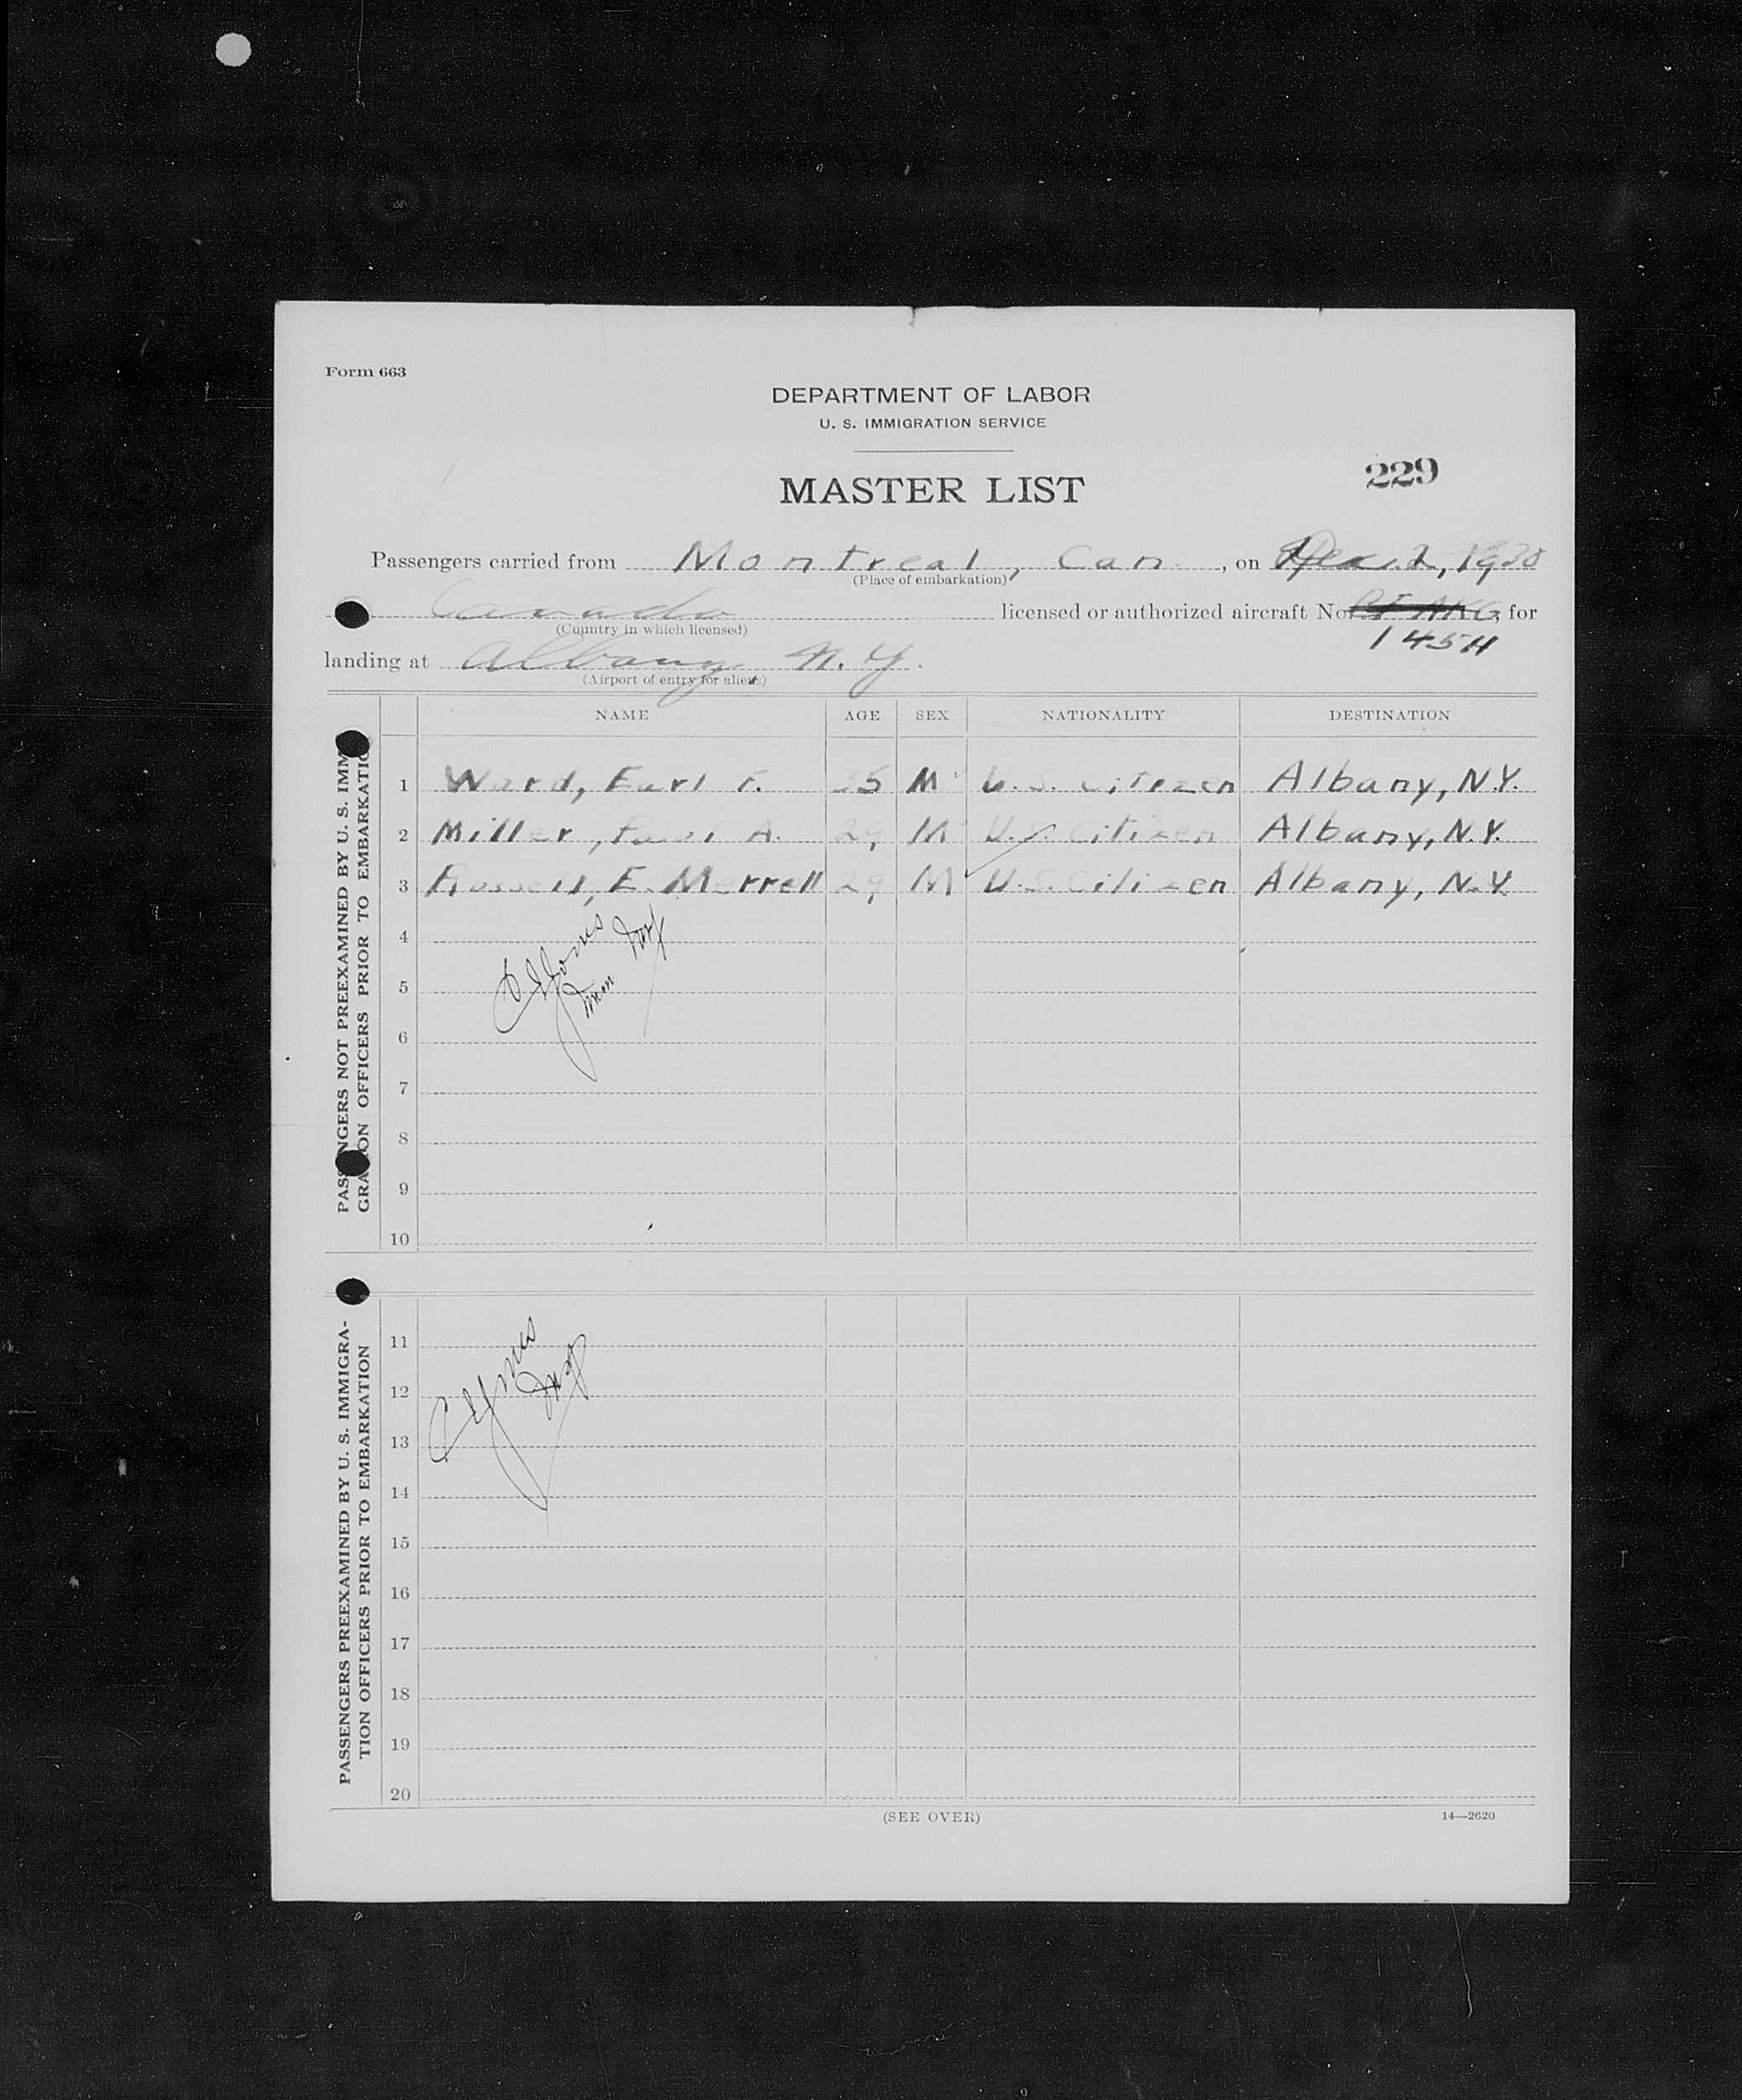 Form 663
DEPARTMENT OF LABOR
U. S. IMMIGRATION SERVICE
MASTER LIST
229
Passengers carried from Montreal, Can. , on Dec. 2, 1930
(Place of embarkation)
Canada licensed or authorized aircraft No. for
(Country in which licensed)
145H
landing at Albany N. Y.
(Airport of entry for aliens)
NAME AGE SEX NATIONALITY DESTINATION
PASSENGERS NOT PREEXAMINED BY U. S. IMMI-
GRATION OFFICERS PRIOR TO EMBARKATION
1 Ward, Earl F. 35 M U. S. Citizen Albany, N.Y.
2 Miller, Paul A. 29, M U. S. Citizen Albany, N.Y.
3 Russell, E. Merrell 29, M U. S. Citizen Albany, N.Y.
4
5
6
7
8
9
10
PASSENGERS PREEXAMINED BY U. S. IMMIGRA-
TION OFFICERS PRIOR TO EMBARKATION
11
12
13
14
15
16
17
18
19
20
(SEE OVER)
14—2620